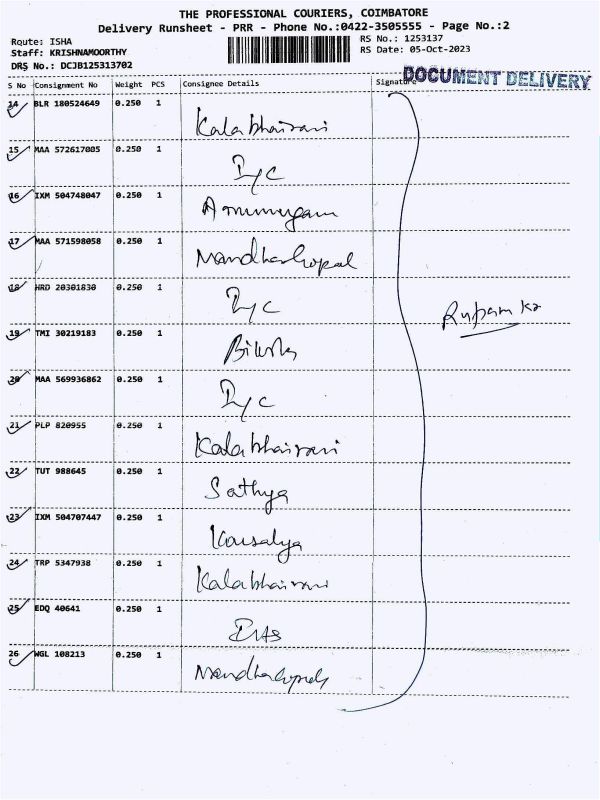 THE PROFESSIONAL COURIERS, COIMBATORE
Delivery Runsheet - PRR - Phone No.:0422-3505555 - Page No.:2
Route: ISHA RS No.: 1253137
Staff: KRISHNAMOORTHY RS Date: 05-Oct-2023
DRS No.: DCJB125313702
DOCUMENT DELIVERY
S No Consignment No Weight PCS Consignee Details Signature
14 BLR 180524649 0.250 1 Kalabhairavi
15 MAA 572617005 0.250 1
16 IXM 504748047 0.250 1 Arumugam
17 MAA 571598058 0.250 1
18 HRD 20301830 0.250 1
19 TMI 30219183 0.250 1
20 MAA 569936862 0.250 1
21 PLP 820955 0.250 1 Kalabhairavi
22 TUT 988645 0.250 1 Sathya
23 IXM 504707447 0.250 1 Kousalya
24 TRP 5347938 0.250 1 Kalabhairavi
25 EDQ 40641 0.250 1
26 WGL 108213 0.250 1